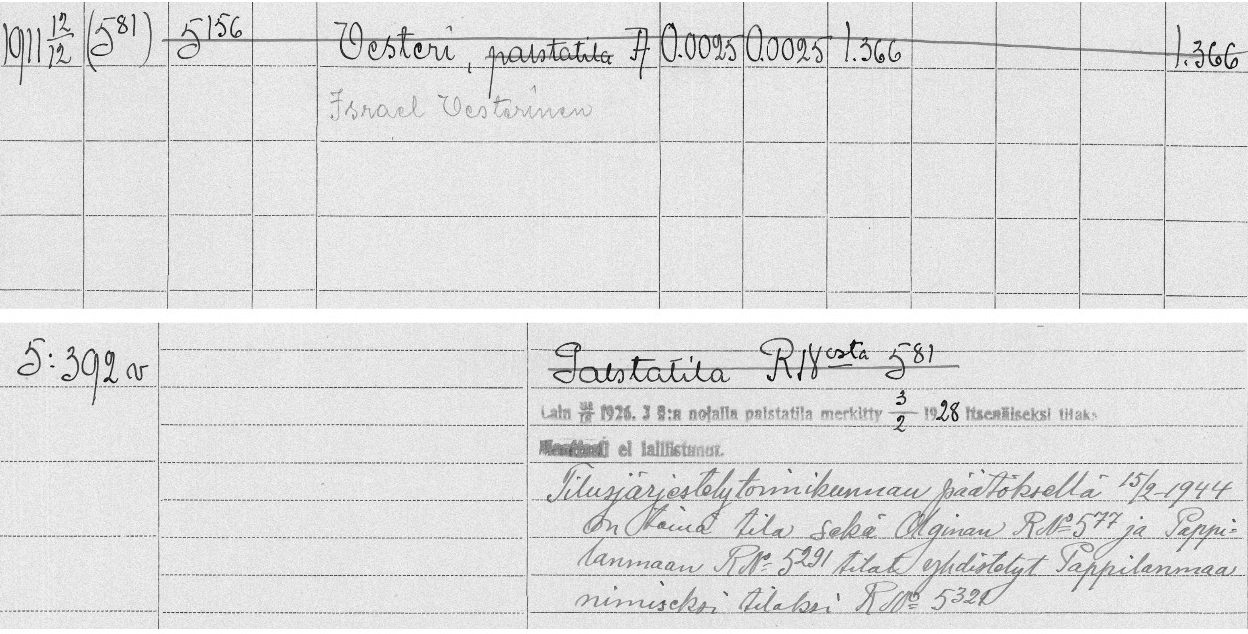 1911 12/12 (5⁸¹) 5¹⁵⁶ Vesteri, palstatila A 0.0025 0.0025 1.366 1.366
Israel Vesterinen
5:392 v Palstatila RN:esta 5⁸¹
Lain 1926. 3 §:n nojalla palstatila merkitty 3/2 1928 itsenäiseksi tilaks
ei laillistunut.
Tilusjärjestelytoimikunnan päätöksellä 15/2-1944
on tämä tila sekä Olginan RNº 5⁷⁷ ja Pappi-
lanmaan RNº 5²⁹¹ tilat yhdistetyt Pappilanmaa
nimiseksi tilaksi RNº 5³²¹